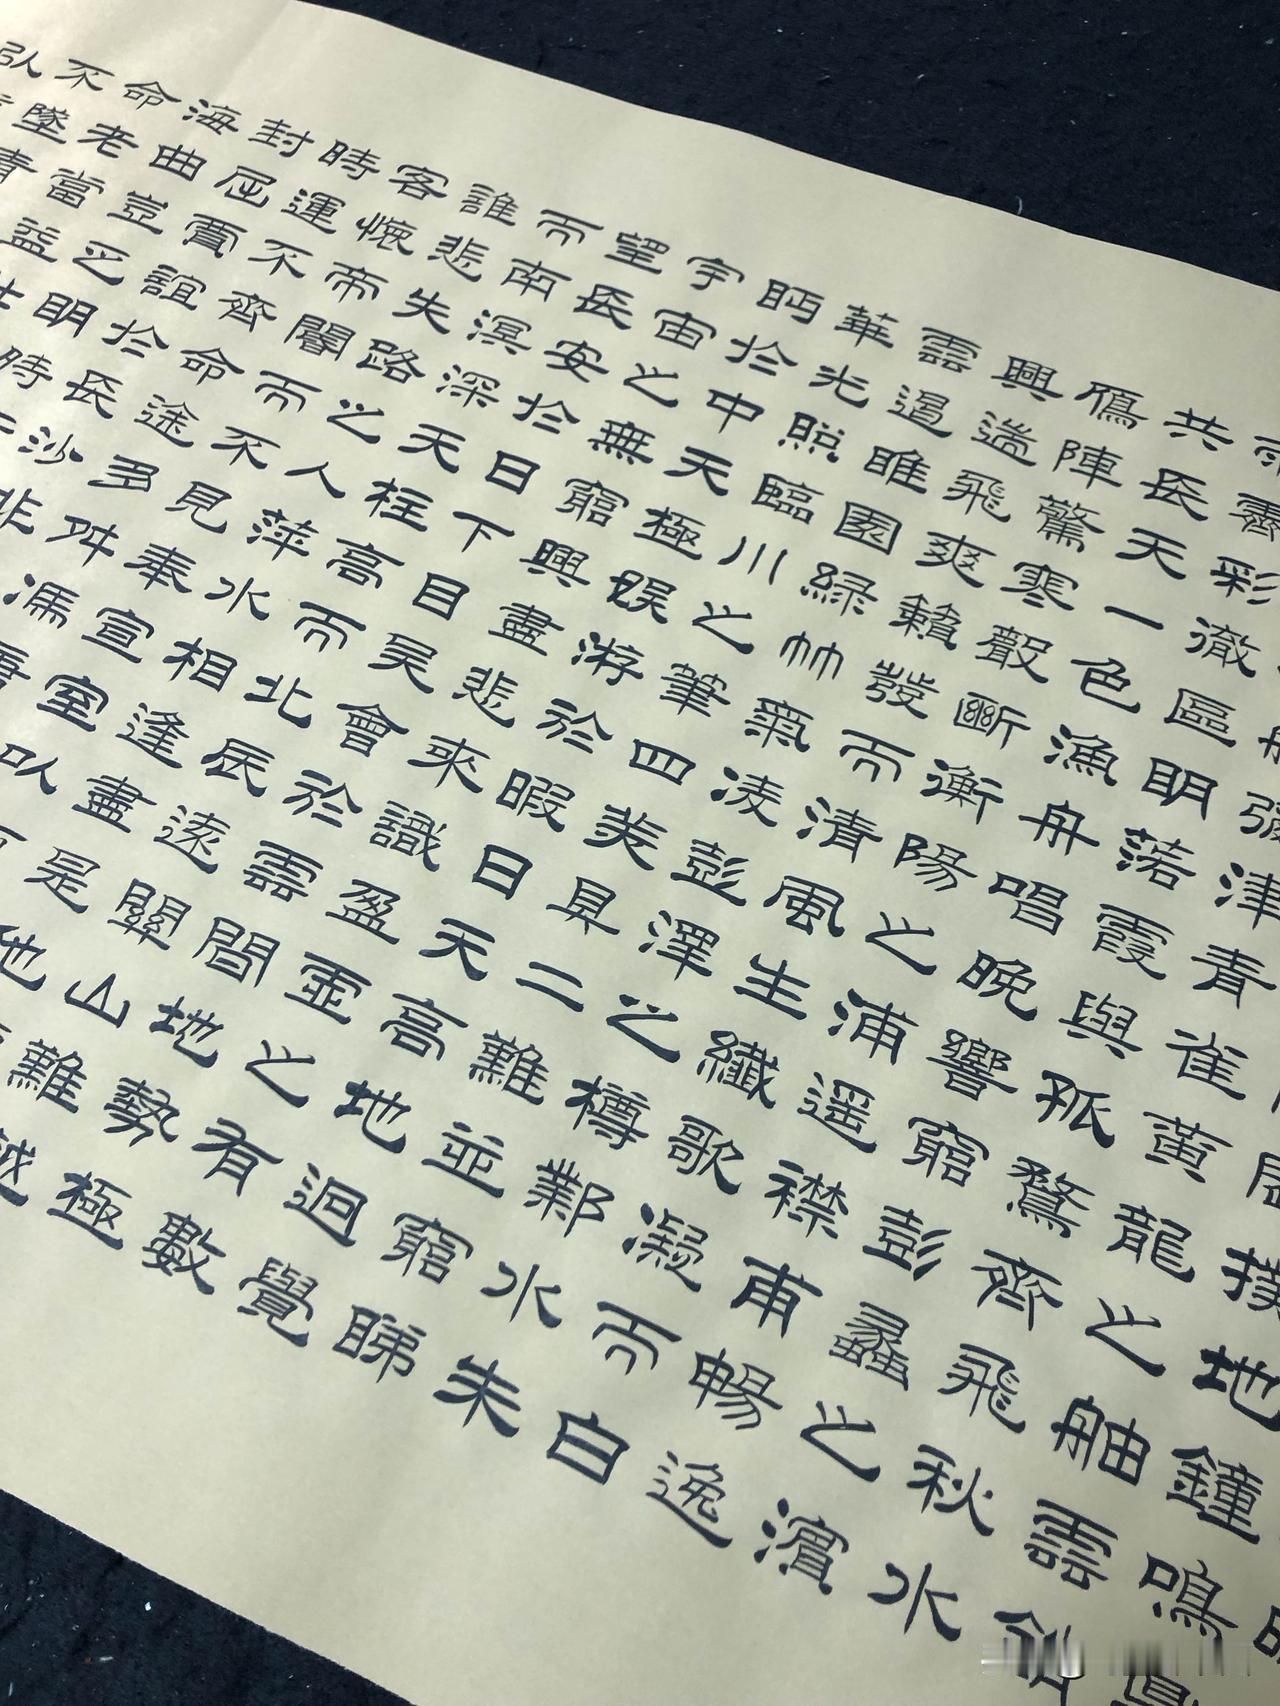 撲地鐘鳴
津青雀黃龍之舳雲銷
雨霽彩徹區明落霞與孤鶩齊飛秋水
共長天一色漁舟唱晚響窮彭蠡之濱
雁陣驚寒聲斷衡陽之浦遙襟甫暢逸
興遄飛爽籟發而清風生纖歌凝而白
雲遏睢園綠竹氣凌彭澤之樽鄴水朱
華光照臨川之筆四美具二難並窮睇
眄於中天極娛游於暇日天高地迥覺
宇宙之無窮興盡悲來識盈虛之有數
望長安於日下目吳會於雲間地勢極
而南溟深天柱高而北辰遠關山難越
誰悲失路之人萍水相逢盡是他
客懷帝閽而不見奉宣室以
時運不齊命途多舛馮
封屈賈誼於長沙非
海曲豈乏明時
命老當益
不墜青
弘